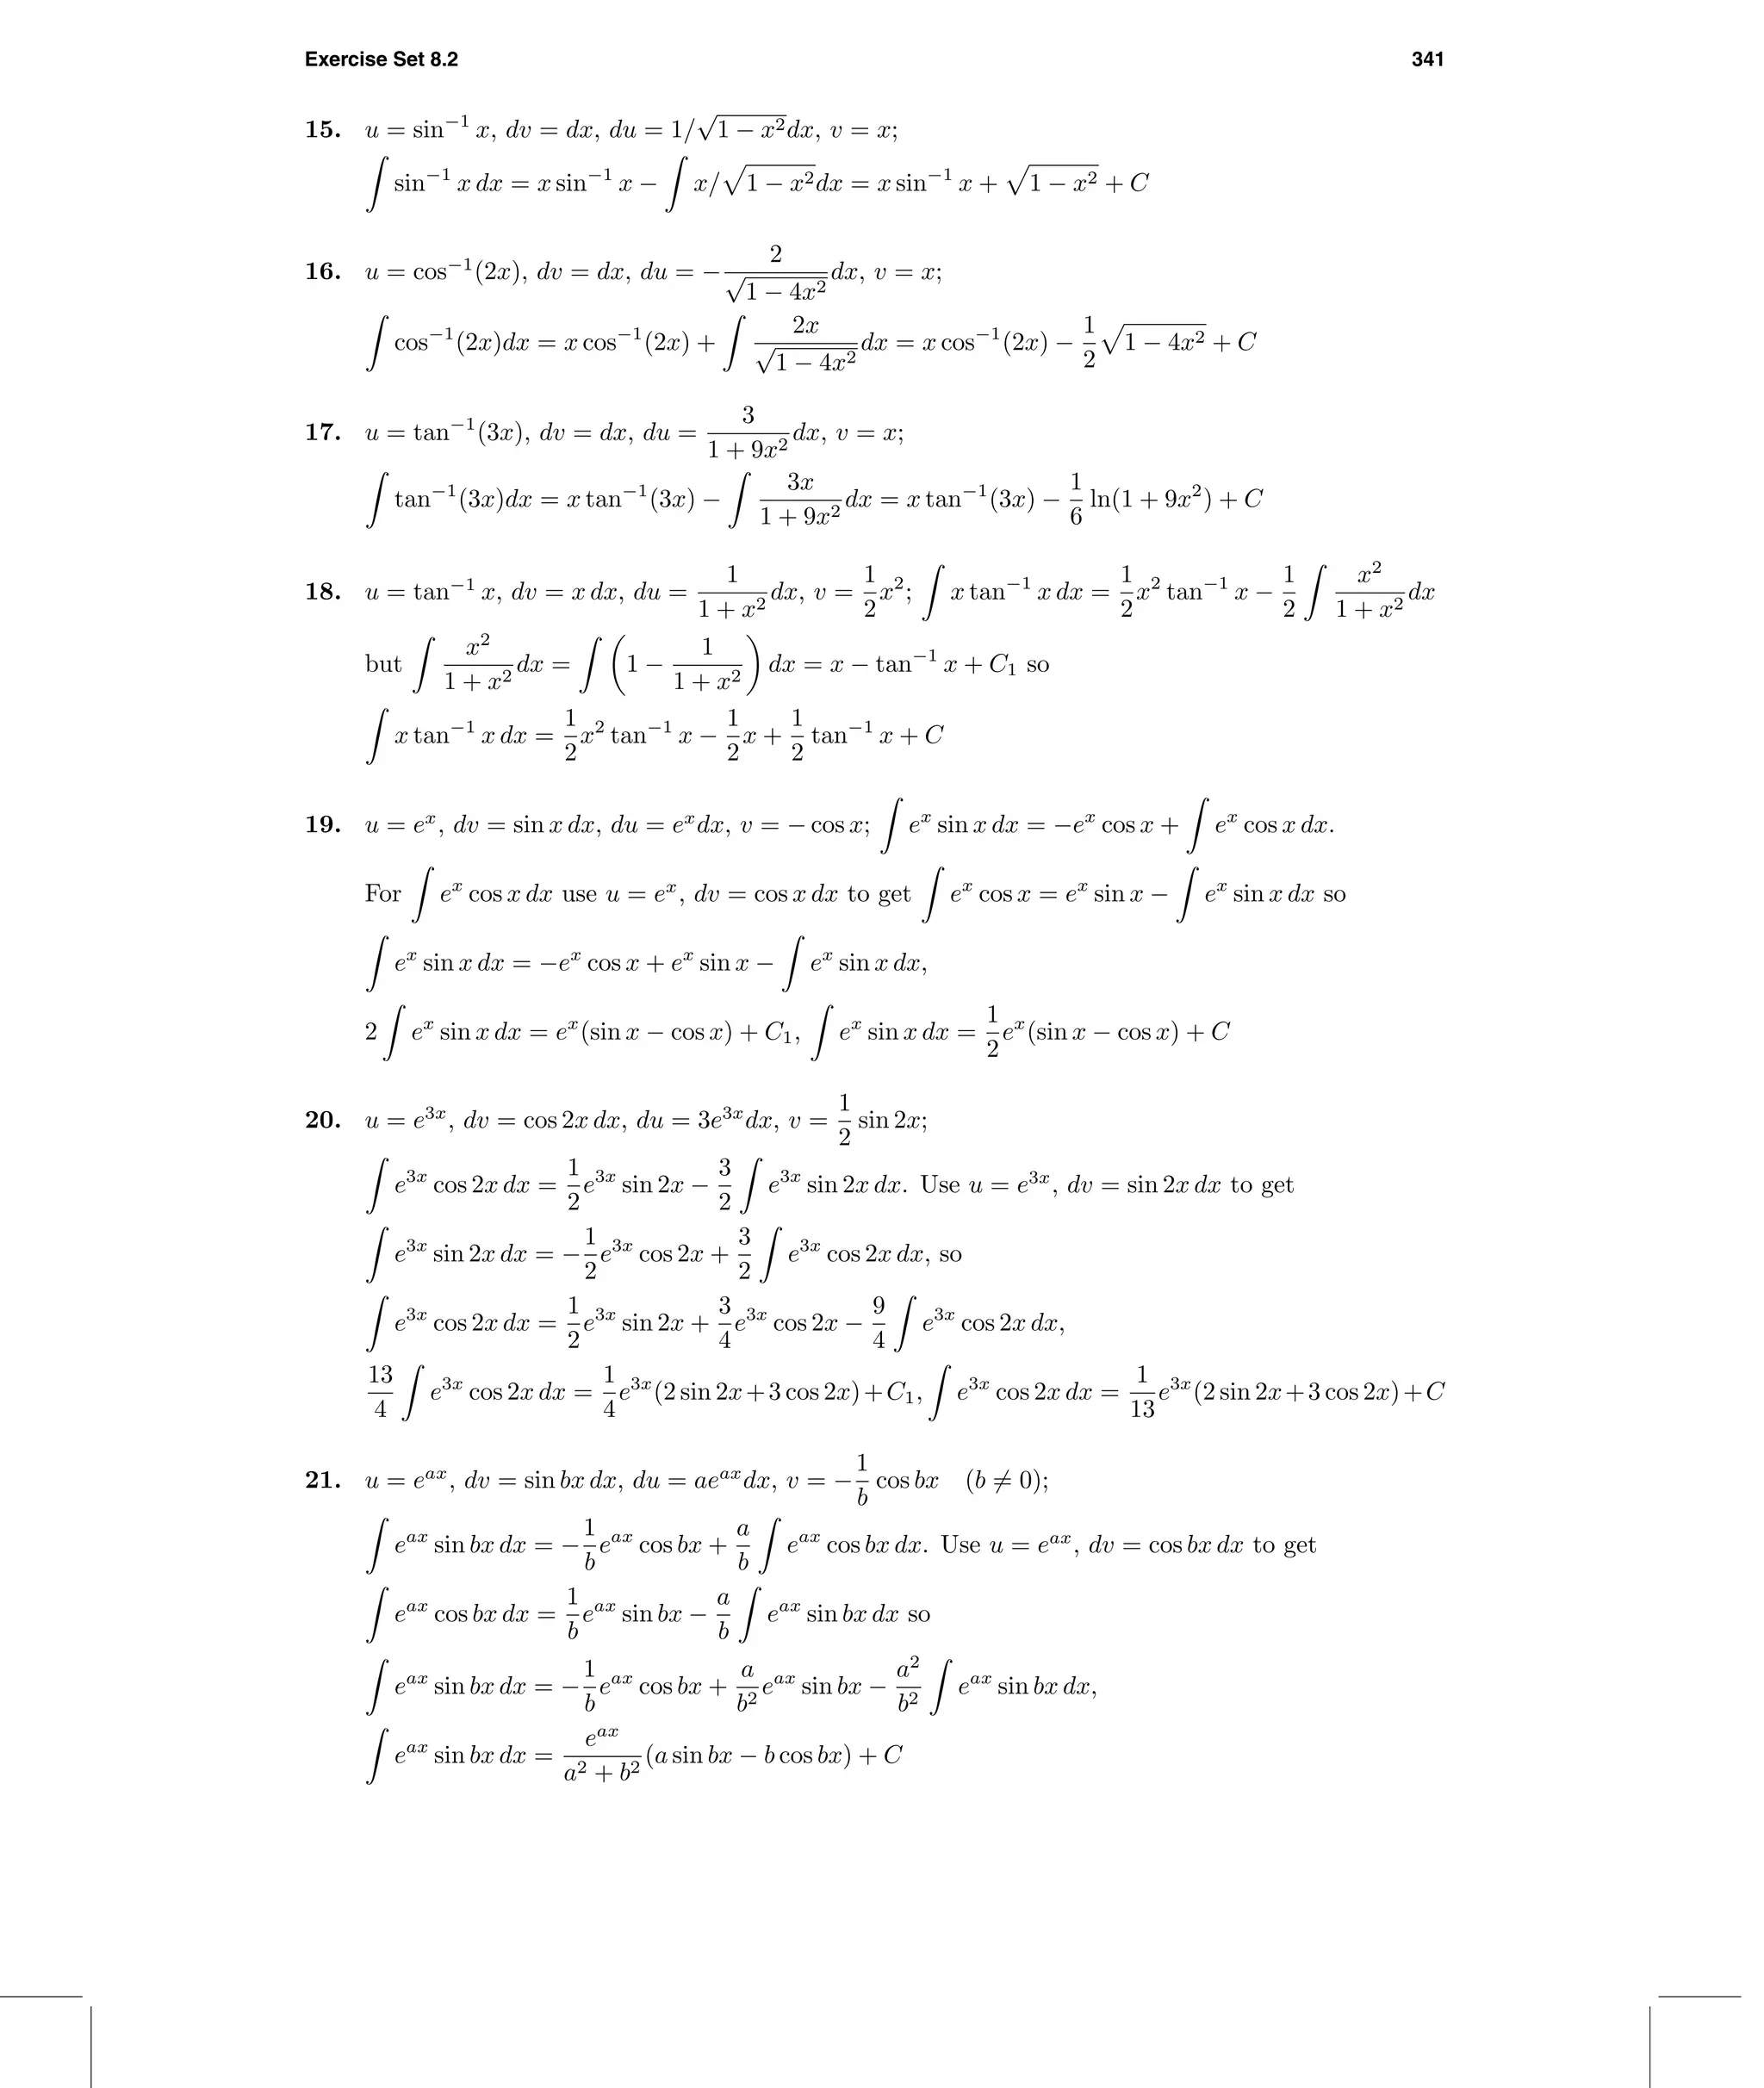 Exercise Set 8.2 341
15. u = sin⁻¹ x, dv = dx, du = 1/√(1 − x²)dx, v = x;
∫ sin⁻¹ x dx = x sin⁻¹ x − ∫ x/√(1 − x²)dx = x sin⁻¹ x + √(1 − x²) + C
16. u = cos⁻¹(2x), dv = dx, du = −2/√(1 − 4x²) dx, v = x;
∫ cos⁻¹(2x)dx = x cos⁻¹(2x) + ∫ 2x/√(1 − 4x²) dx = x cos⁻¹(2x) − 1/2 √(1 − 4x²) + C
17. u = tan⁻¹(3x), dv = dx, du = 3/(1 + 9x²) dx, v = x;
∫ tan⁻¹(3x)dx = x tan⁻¹(3x) − ∫ 3x/(1 + 9x²) dx = x tan⁻¹(3x) − 1/6 ln(1 + 9x²) + C
18. u = tan⁻¹ x, dv = x dx, du = 1/(1 + x²) dx, v = 1/2 x²; ∫ x tan⁻¹ x dx = 1/2 x² tan⁻¹ x − 1/2 ∫ x²/(1 + x²) dx
but ∫ x²/(1 + x²) dx = ∫ (1 − 1/(1 + x²)) dx = x − tan⁻¹ x + C₁ so
∫ x tan⁻¹ x dx = 1/2 x² tan⁻¹ x − 1/2 x + 1/2 tan⁻¹ x + C
19. u = eˣ, dv = sin x dx, du = eˣdx, v = − cos x; ∫ eˣ sin x dx = −eˣ cos x + ∫ eˣ cos x dx.
For ∫ eˣ cos x dx use u = eˣ, dv = cos x dx to get ∫ eˣ cos x = eˣ sin x − ∫ eˣ sin x dx so
∫ eˣ sin x dx = −eˣ cos x + eˣ sin x − ∫ eˣ sin x dx,
2 ∫ eˣ sin x dx = eˣ(sin x − cos x) + C₁, ∫ eˣ sin x dx = 1/2 eˣ(sin x − cos x) + C
20. u = e³ˣ, dv = cos 2x dx, du = 3e³ˣdx, v = 1/2 sin 2x;
∫ e³ˣ cos 2x dx = 1/2 e³ˣ sin 2x − 3/2 ∫ e³ˣ sin 2x dx. Use u = e³ˣ, dv = sin 2x dx to get
∫ e³ˣ sin 2x dx = −1/2 e³ˣ cos 2x + 3/2 ∫ e³ˣ cos 2x dx, so
∫ e³ˣ cos 2x dx = 1/2 e³ˣ sin 2x + 3/4 e³ˣ cos 2x − 9/4 ∫ e³ˣ cos 2x dx,
13/4 ∫ e³ˣ cos 2x dx = 1/4 e³ˣ(2 sin 2x+3 cos 2x)+C₁, ∫ e³ˣ cos 2x dx = 1/13 e³ˣ(2 sin 2x+3 cos 2x)+C
21. u = eᵃˣ, dv = sin bx dx, du = aeᵃˣdx, v = −1/b cos bx (b ≠ 0);
∫ eᵃˣ sin bx dx = −1/b eᵃˣ cos bx + a/b ∫ eᵃˣ cos bx dx. Use u = eᵃˣ, dv = cos bx dx to get
∫ eᵃˣ cos bx dx = 1/b eᵃˣ sin bx − a/b ∫ eᵃˣ sin bx dx so
∫ eᵃˣ sin bx dx = −1/b eᵃˣ cos bx + a/b² eᵃˣ sin bx − a²/b² ∫ eᵃˣ sin bx dx,
∫ eᵃˣ sin bx dx = eᵃˣ/(a² + b²) (a sin bx − b cos bx) + C